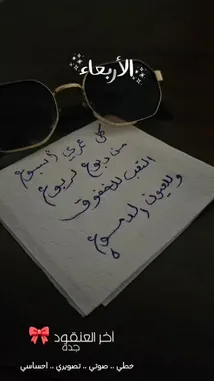 الأربعاء
كل عمري أسبوع
من ربوع لربوع
التعب للخفوق
وللعيون الدموع
اخر العنقود
جده
خطي .. صوتي .. تصويري .. احساسي